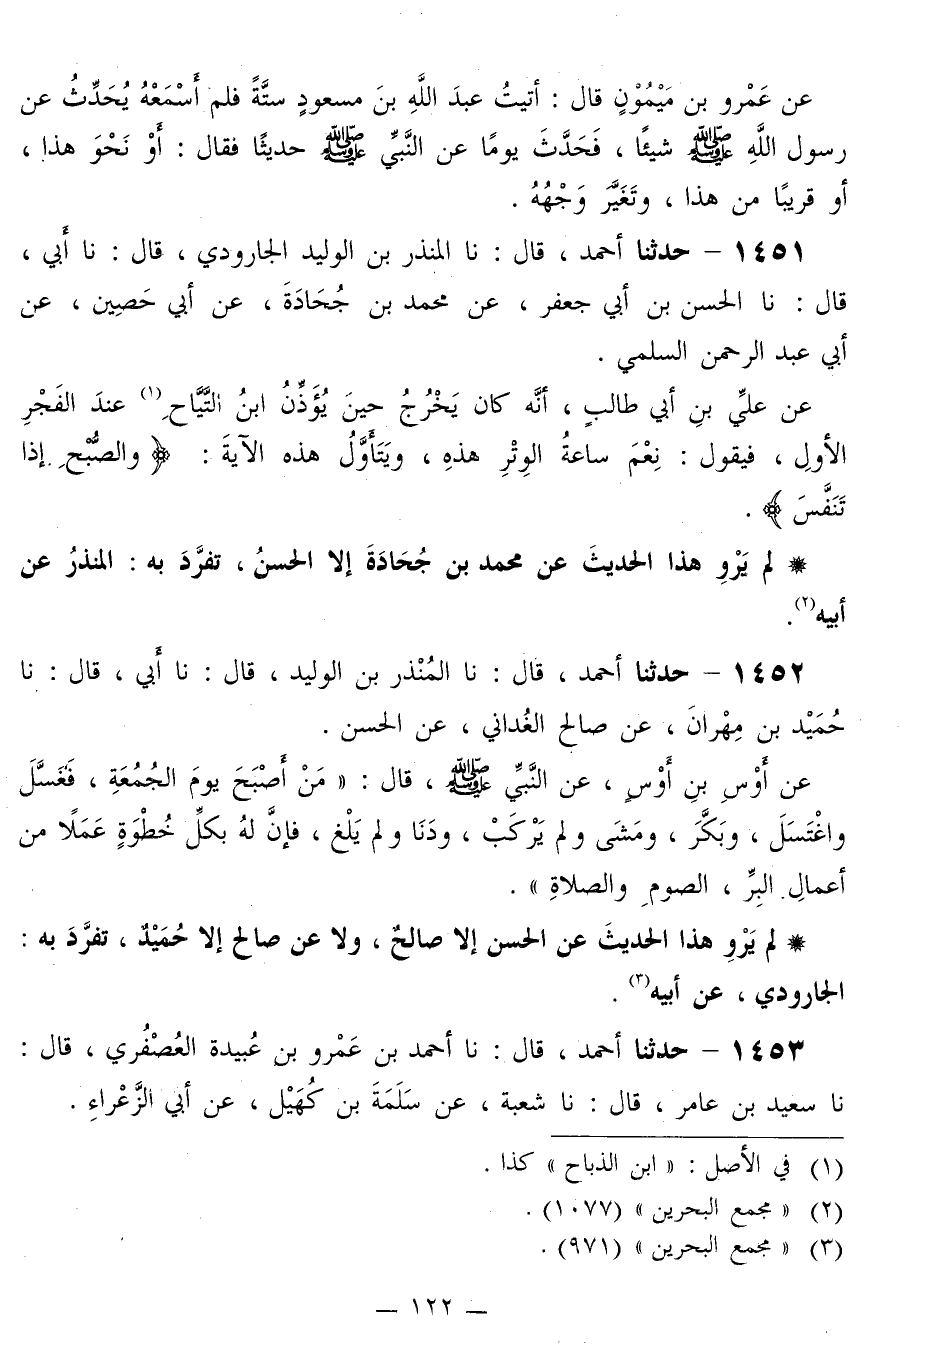 عن عَمْرو بن مَيْمُوْنٍ قال : أتيتُ عبدَ اللَّهِ بنَ مسعودٍ ستَّةً فلم أَسْمَعْهُ يُحَدِّثُ عن
رسول اللَّهِ ﷺ شيئًا ، فَحَدَّثَ يومًا عن النَّبِّي ﷺ حديثًا فقال : أَوْ نَحْوَ هذا ،
أو قريبًا من هذا ، وتَغَيَّر وَجْهُهُ .
١٤٥١ – حدثنا أحمد ، قال : نا المنذر بن الوليد الجارودي ، قال : نا أَبي ،
قال : نا الحسن بن أبي جعفر ، عن محمد بن جُحَادَةَ ، عن أبي حَصِين ، عن
أبي عبد الرحمن السلمي .
عن عليِّ بنِ أبي طالبٍ ، أنَّه كان يَخْرُجُ حينَ يُؤَذِّنُ ابنُ التَّيَّاحِ(١) عندَ الفَجْرِ
الأولِ ، فيقول : نِعْمَ ساعةُ الوِتْرِ هذهِ ، ويَتَأَوَّلُ هذه الآيةَ : ﴿ والصُّبْحِ إذا
تَنَفَّسَ ﴾ .
* لم يَرْوِ هذا الحديثَ عن محمد بن جُحَادَةَ إلا الحسنُ ، تفرَّدَ به : المنذرُ عن
أبيه(٢).
١٤٥٢ – حدثنا أحمد ، قال : نا المُنْذر بن الوليد ، قال : نا أَبي ، قال : نا
حُمَيْد بن مِهْرانَ ، عن صالح الغُداني ، عن الحسن .
عن أَوْسِ بنِ أَوْسٍ ، عن النَّبيِّ ﷺ ، قال : « مَنْ أَصْبَحَ يومَ الجُمُعَةِ ، فَغَسَّلَ
واغْتَسَلَ ، وبَكَّرَ ، ومَشَى ولم يَرْكَبْ ، ودَنَا ولم يَلْغ ، فإنَّ لهُ بكلِّ خُطْوَةٍ عَمَلًا من
أعمالِ البِرِّ ، الصومِ والصلاةِ » .
* لم يَرْوِ هذا الحديثَ عن الحسن إلا صالحٌ ، ولا عن صالح إلا حُمَيْدٌ ، تفرَّدَ به :
الجارودي ، عن أبيه(٣) .
١٤٥٣ – حدثنا أحمد ، قال : نا أحمد بن عَمْرو بن عُبيدة العُصْفُري ، قال :
نا سعيد بن عامر ، قال : نا شعبة ، عن سَلَمَةَ بن كُهَيْل ، عن أبي الزَّعْراءِ .
(١) في الأصل : « ابن الذباح » كذا .
(٢) « مجمع البحرين » (١٠٧٧) .
(٣) « مجمع البحرين » (٩٧١) .
– ١٢٢ –